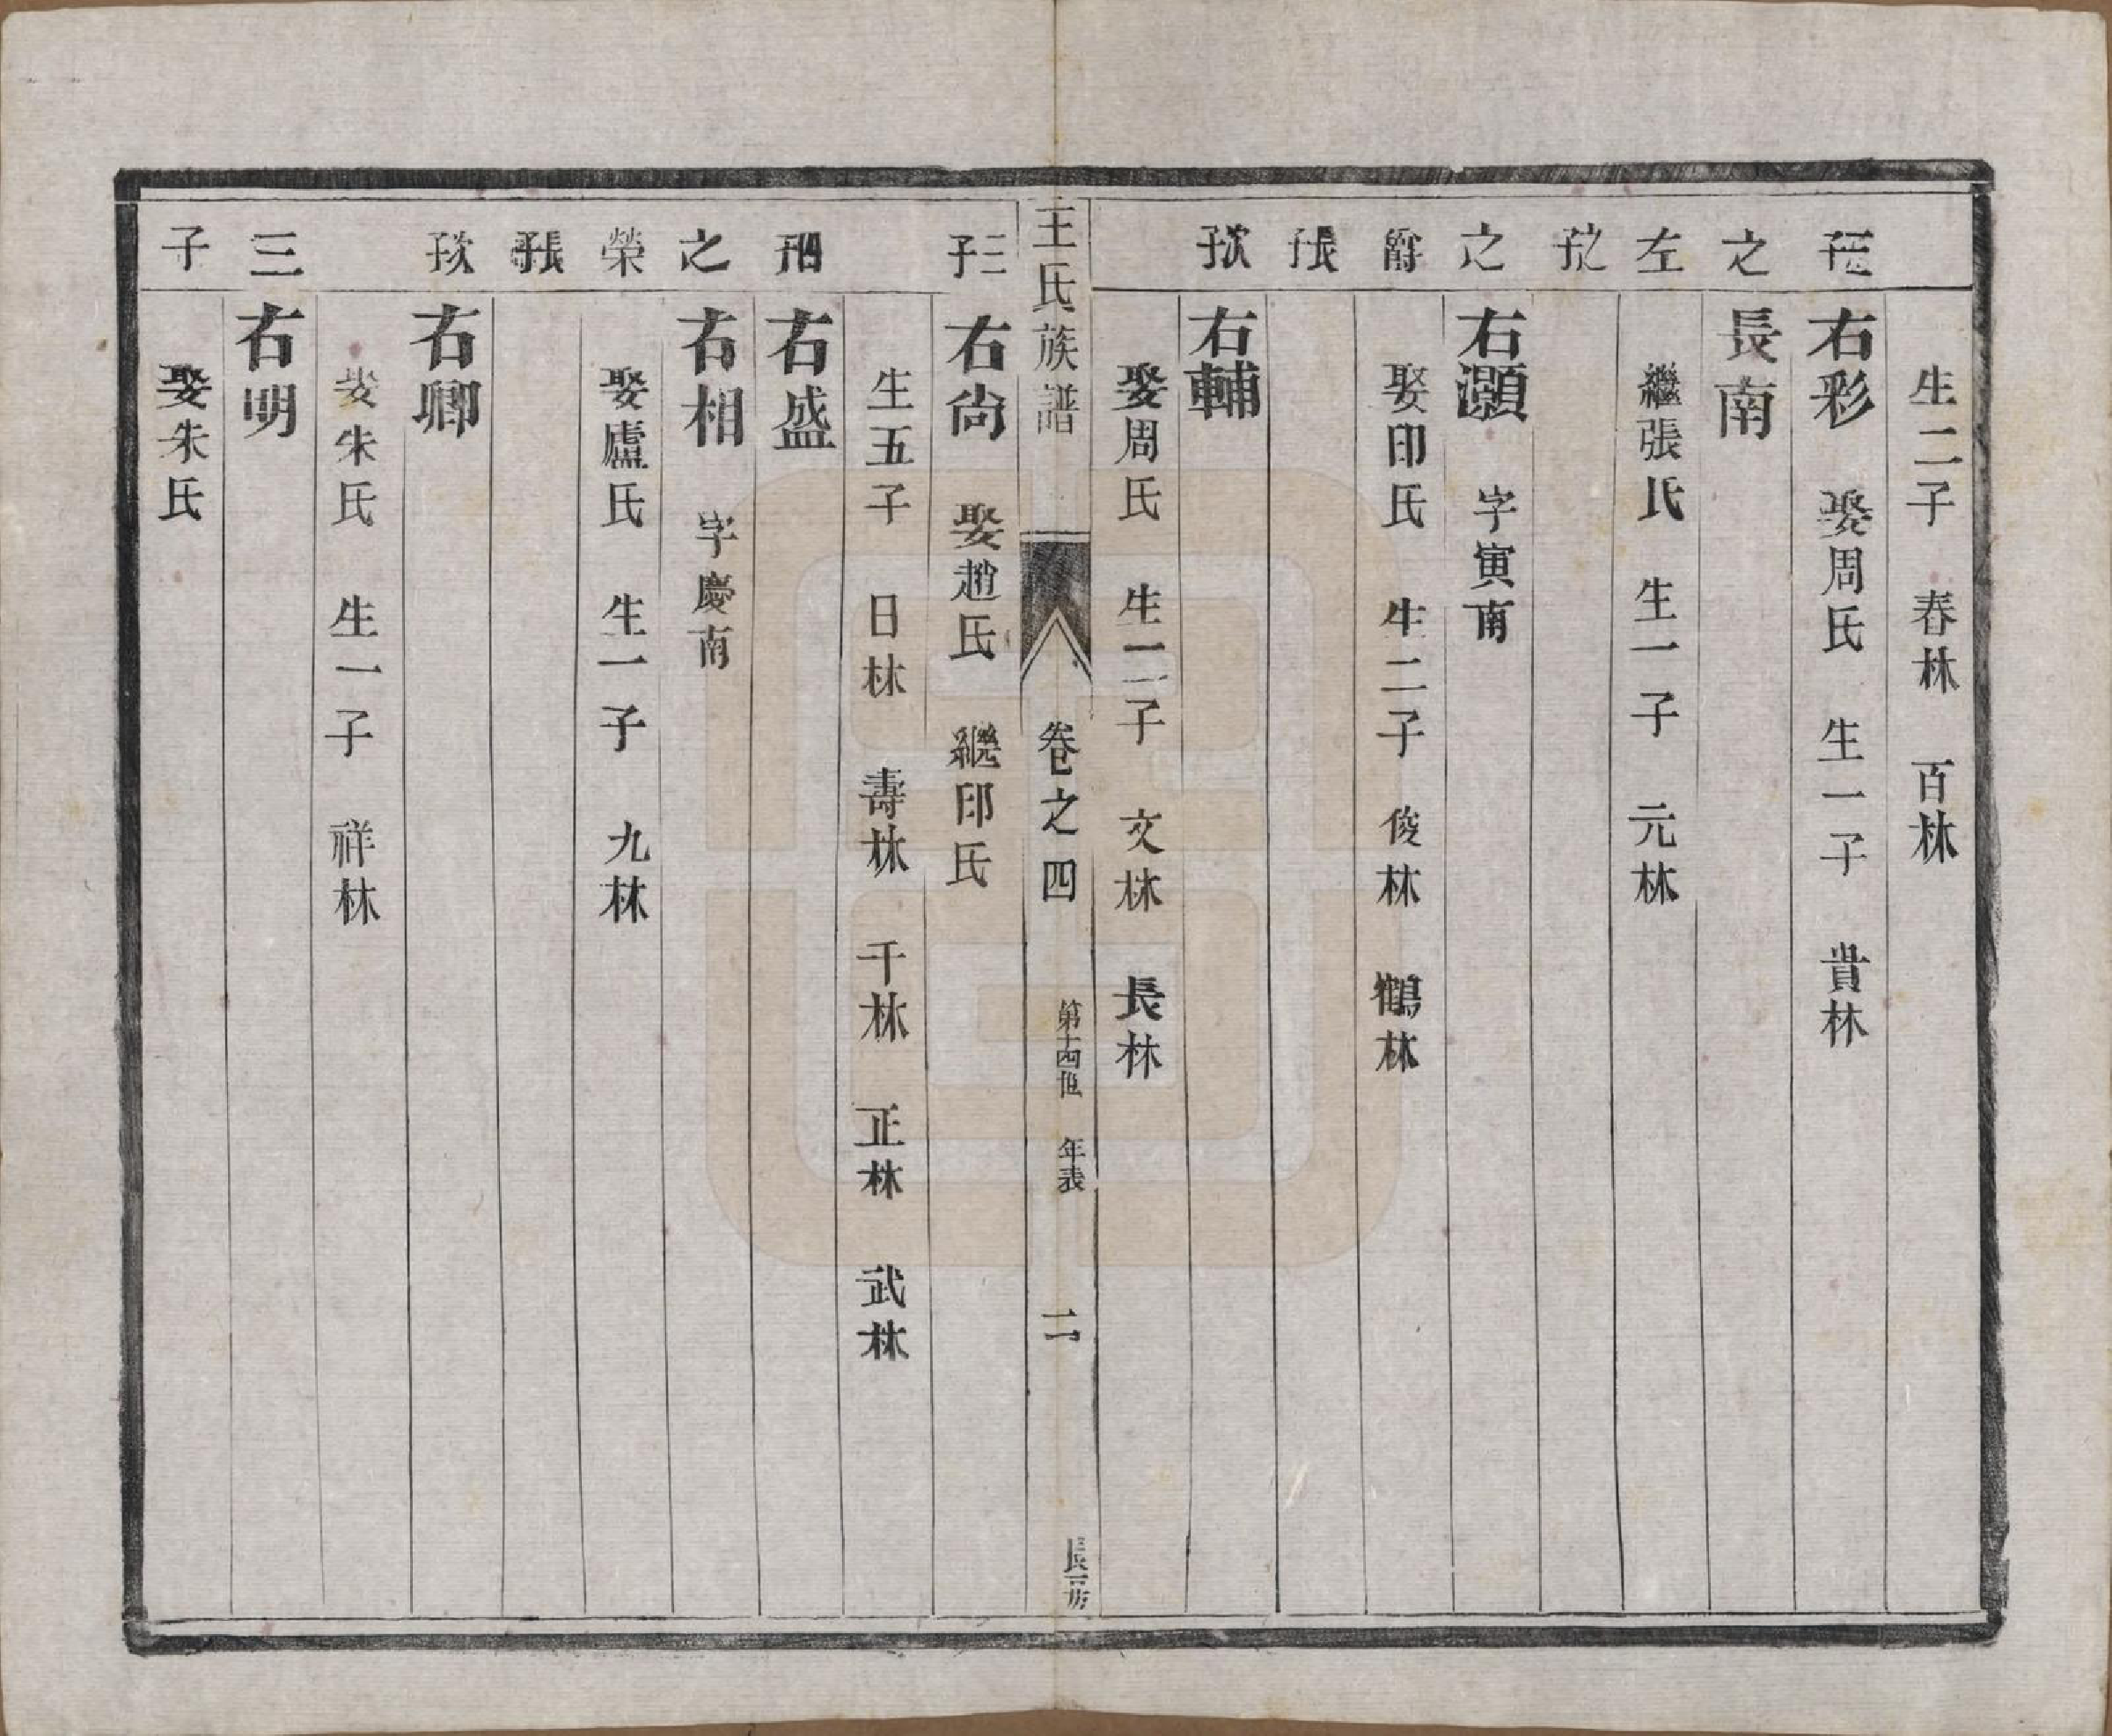 三子 之左之子 之爵長子 次子
生二子 春林 百林
右彩 娶周氏 生一子 貴林
長南
繼張氏 生一子 元林
右灝 字寅南
娶印氏 生二子 俊林 鶴林
右輔
娶周氏 生二子 文林 長林
王氏族譜 卷之四 第十四世 年表 二 長房
三子 四子 之榮長子 次子 三子
右尙 娶趙氏 繼印氏
生五子 日林 壽林 千林 正林 武林
右盛
右相 字慶南
娶盧氏 生一子 九林
右卿
娶朱氏 生一子 祥林
右明
娶朱氏